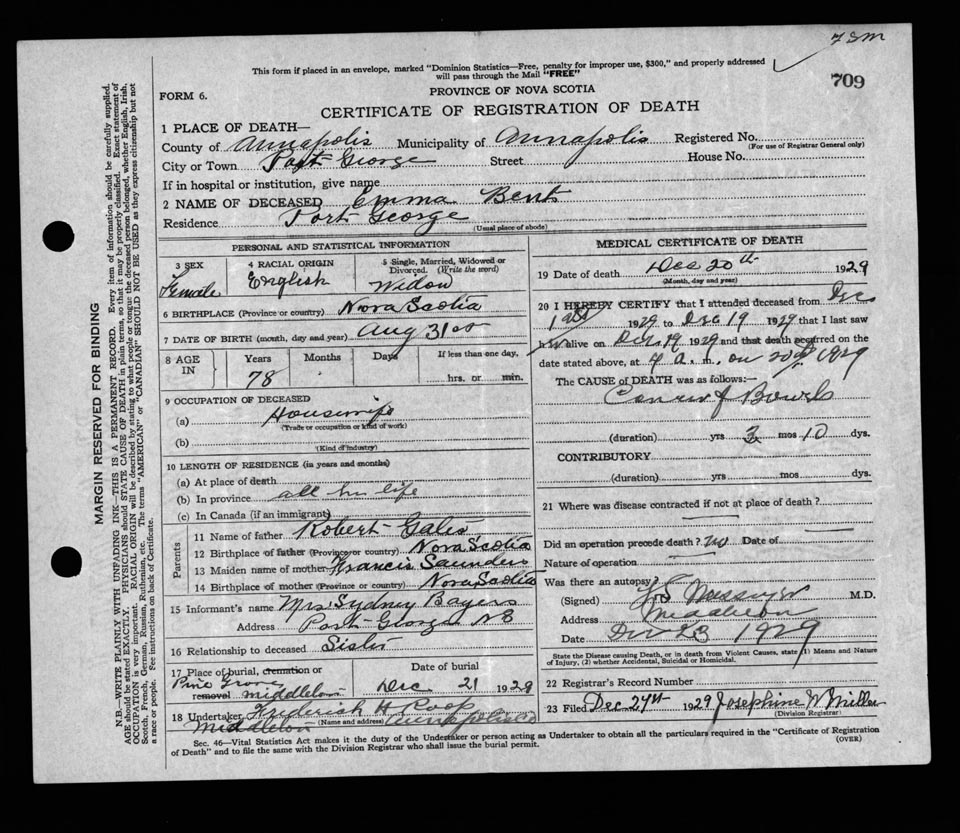 7 SM
This form if placed in an envelope, marked "Dominion Statistics—Free, penalty for improper use, $300," and properly addressed
will pass through the Mail "FREE"
709
PROVINCE OF NOVA SCOTIA
FORM 6.
CERTIFICATE OF REGISTRATION OF DEATH
MARGIN RESERVED FOR BINDING
N.B.—WRITE PLAINLY WITH UNFADING INK—THIS IS A PERMANENT RECORD. Every item of information should be carefully supplied.
AGE should be stated EXACTLY. PHYSICIANS should STATE CAUSE OF DEATH in plain terms, so that it may be properly classified. Exact statement of
OCCUPATION is very important. RACIAL ORIGIN will be described by stating to what people or tongue the deceased person belonged, whether English, Irish,
Scotch, French, German, Russian, Ruthenian, etc. The terms "AMERICAN" or "CANADIAN" SHOULD NOT BE USED as they express citizenship but not
a race or people. See instructions on back of Certificate.
1 PLACE OF DEATH—
County of Annapolis Municipality of Annapolis Registered No.
(For use of Registrar General only)
City or Town Port George Street House No.
If in hospital or institution, give name
2 NAME OF DECEASED Emma Bent
Residence Port George
(Usual place of abode)
PERSONAL AND STATISTICAL INFORMATION
3 SEX 4 RACIAL ORIGIN 5 Single, Married, Widowed or
Divorced. (Write the word)
Female English Widow
6 BIRTHPLACE (Province or country) Nova Scotia
7 DATE OF BIRTH (month, day and year) Aug 31st
8 AGE IN Years Months Days If less than one day.
78 hrs. or min.
9 OCCUPATION OF DECEASED
(a) Housewife
(Trade or occupation or kind of work)
(b)
(Kind of industry)
10 LENGTH OF RESIDENCE (in years and months)
(a) At place of death
(b) In province all her life
(c) In Canada (if an immigrant)
Parents
11 Name of father Robert Gates
12 Birthplace of father (Province or country) Nova Scotia
13 Maiden name of mother Francis Saunders
14 Birthplace of mother (Province or country) Nova Scotia
15 Informant's name Mrs Sydney Bayers
Address Port George NS
16 Relationship to deceased Sister
17 Place of burial, cremation or Date of burial
Pine Grove
removal Middleton Dec 21 1929
18 Undertaker Frederick H Roop
Middleton (Name and address) Annapolis Co
MEDICAL CERTIFICATE OF DEATH
19 Date of death Dec 20th 1929
(Month, day and year)
20 I HEREBY CERTIFY that I attended deceased from Dec
1st 1929 to Dec 19 1929 that I last saw
h alive on Dec 19 1929 and that death occurred on the
date stated above, at 4 a. m. on 20th 1929
The CAUSE of DEATH was as follows:—
Cancer of Bowels
(duration) yrs 2 mos 10 dys.
CONTRIBUTORY
(duration) yrs mos dys.
21 Where was disease contracted if not at place of death?
Did an operation precede death? no Date of
Nature of operation
Was there an autopsy?
(Signed) M.D.
Address Middleton
Date Dec 23 1929
State the Disease causing Death, or in death from Violent Causes, state 1) Means and Nature
of Injury, (2) whether Accidental, Suicidal or Homicidal.
22 Registrar's Record Number
23 Filed Dec 27th 1929 Josephine W Miller
(Division Registrar)
Sec. 46—Vital Statistics Act makes it the duty of the Undertaker or person acting as Undertaker to obtain all the particulars required in the "Certificate of Registration
of Death" and to file the same with the Division Registrar who shall issue the burial permit.
(OVER)